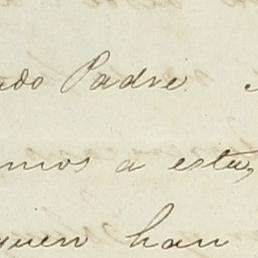 ado Padre.
mos a esta,
quen han